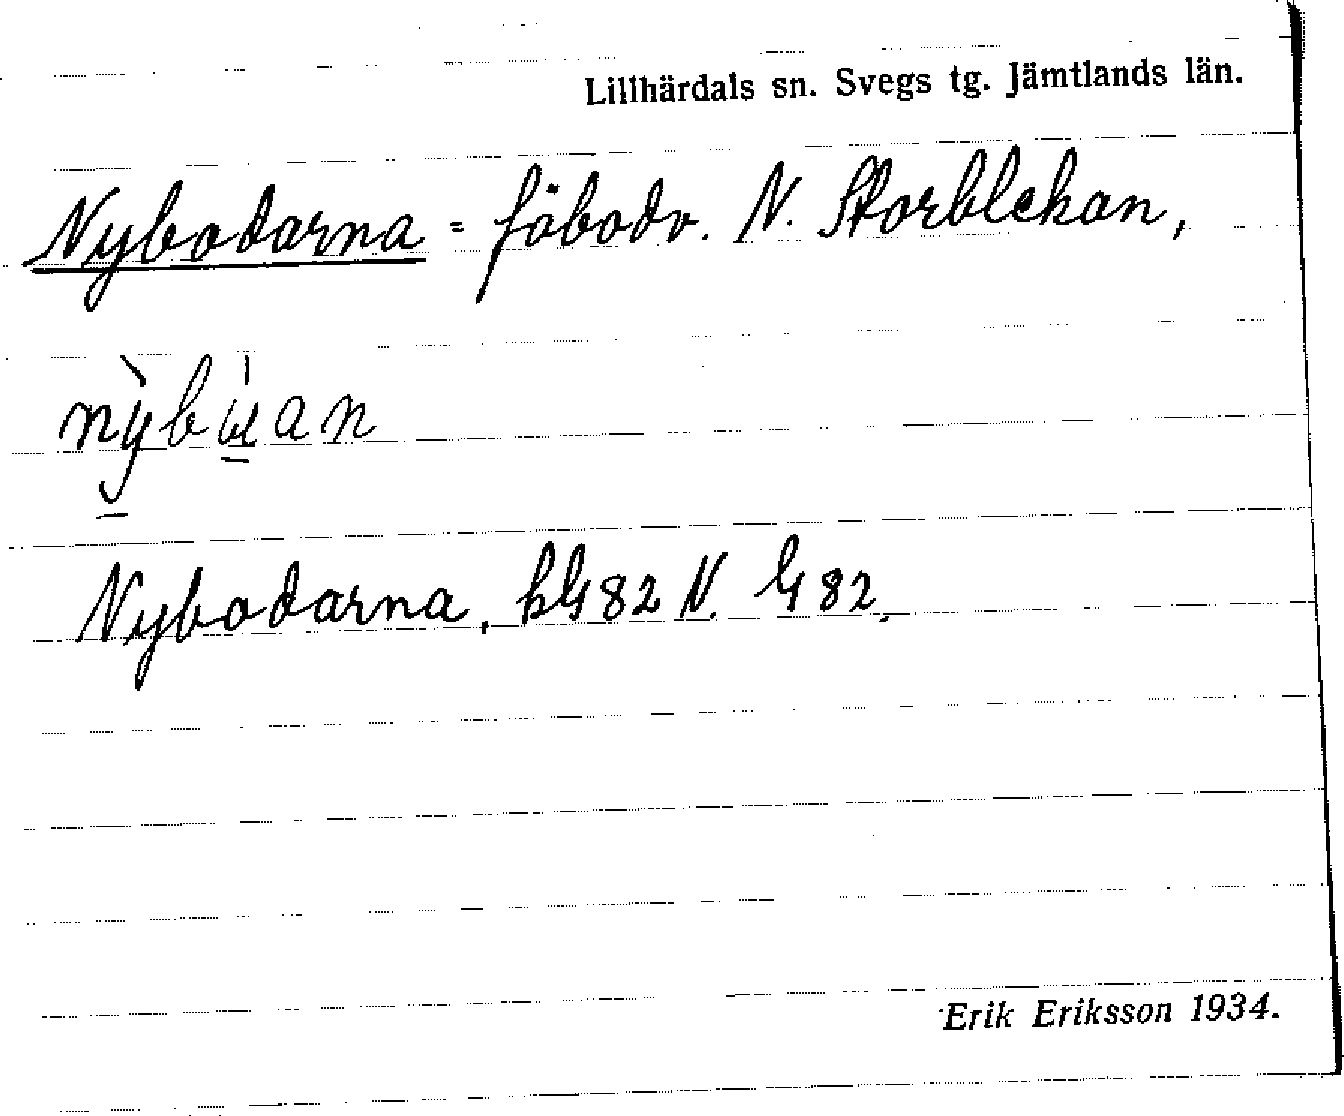 Lillhärdals sn. Svegs tg. Jämtlands län.
Nybodarna = fäbodv. N. Storblekan,
nỳbu̱̍an
Nybodarna, hG82 N. G82.
Erik Eriksson 1934.